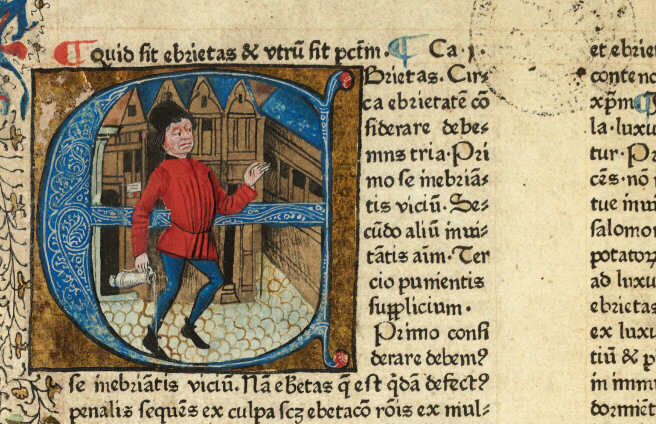 Quid sit ebrietas & vtrū sit pctm̄. Ca. j.
Brietas. Cir⸗
ca ebrietatē cō
siderare debe⸗
mus tria. Pri
mo se inebriā⸗
tis viciū. Se⸗
cūdo aliū inui⸗
tātis aīm. Ter
cio punientis
supplicium.
Primo consi
derare debemꝰ
se inebriātis viciū. Nā ebetas q̄ est q̄dā defectꝰ
penalis sequēs ex culpa scꝫ ebetacō rōis ex mul⸗
et ebrie
contenc
xp̄m
la. luxu
tur. Pr
cēs. nō
tue inui
salomon
potatoꝝ
ad luxu
ebrietas
ex luxu
tiū & p
in immu
dormiēt